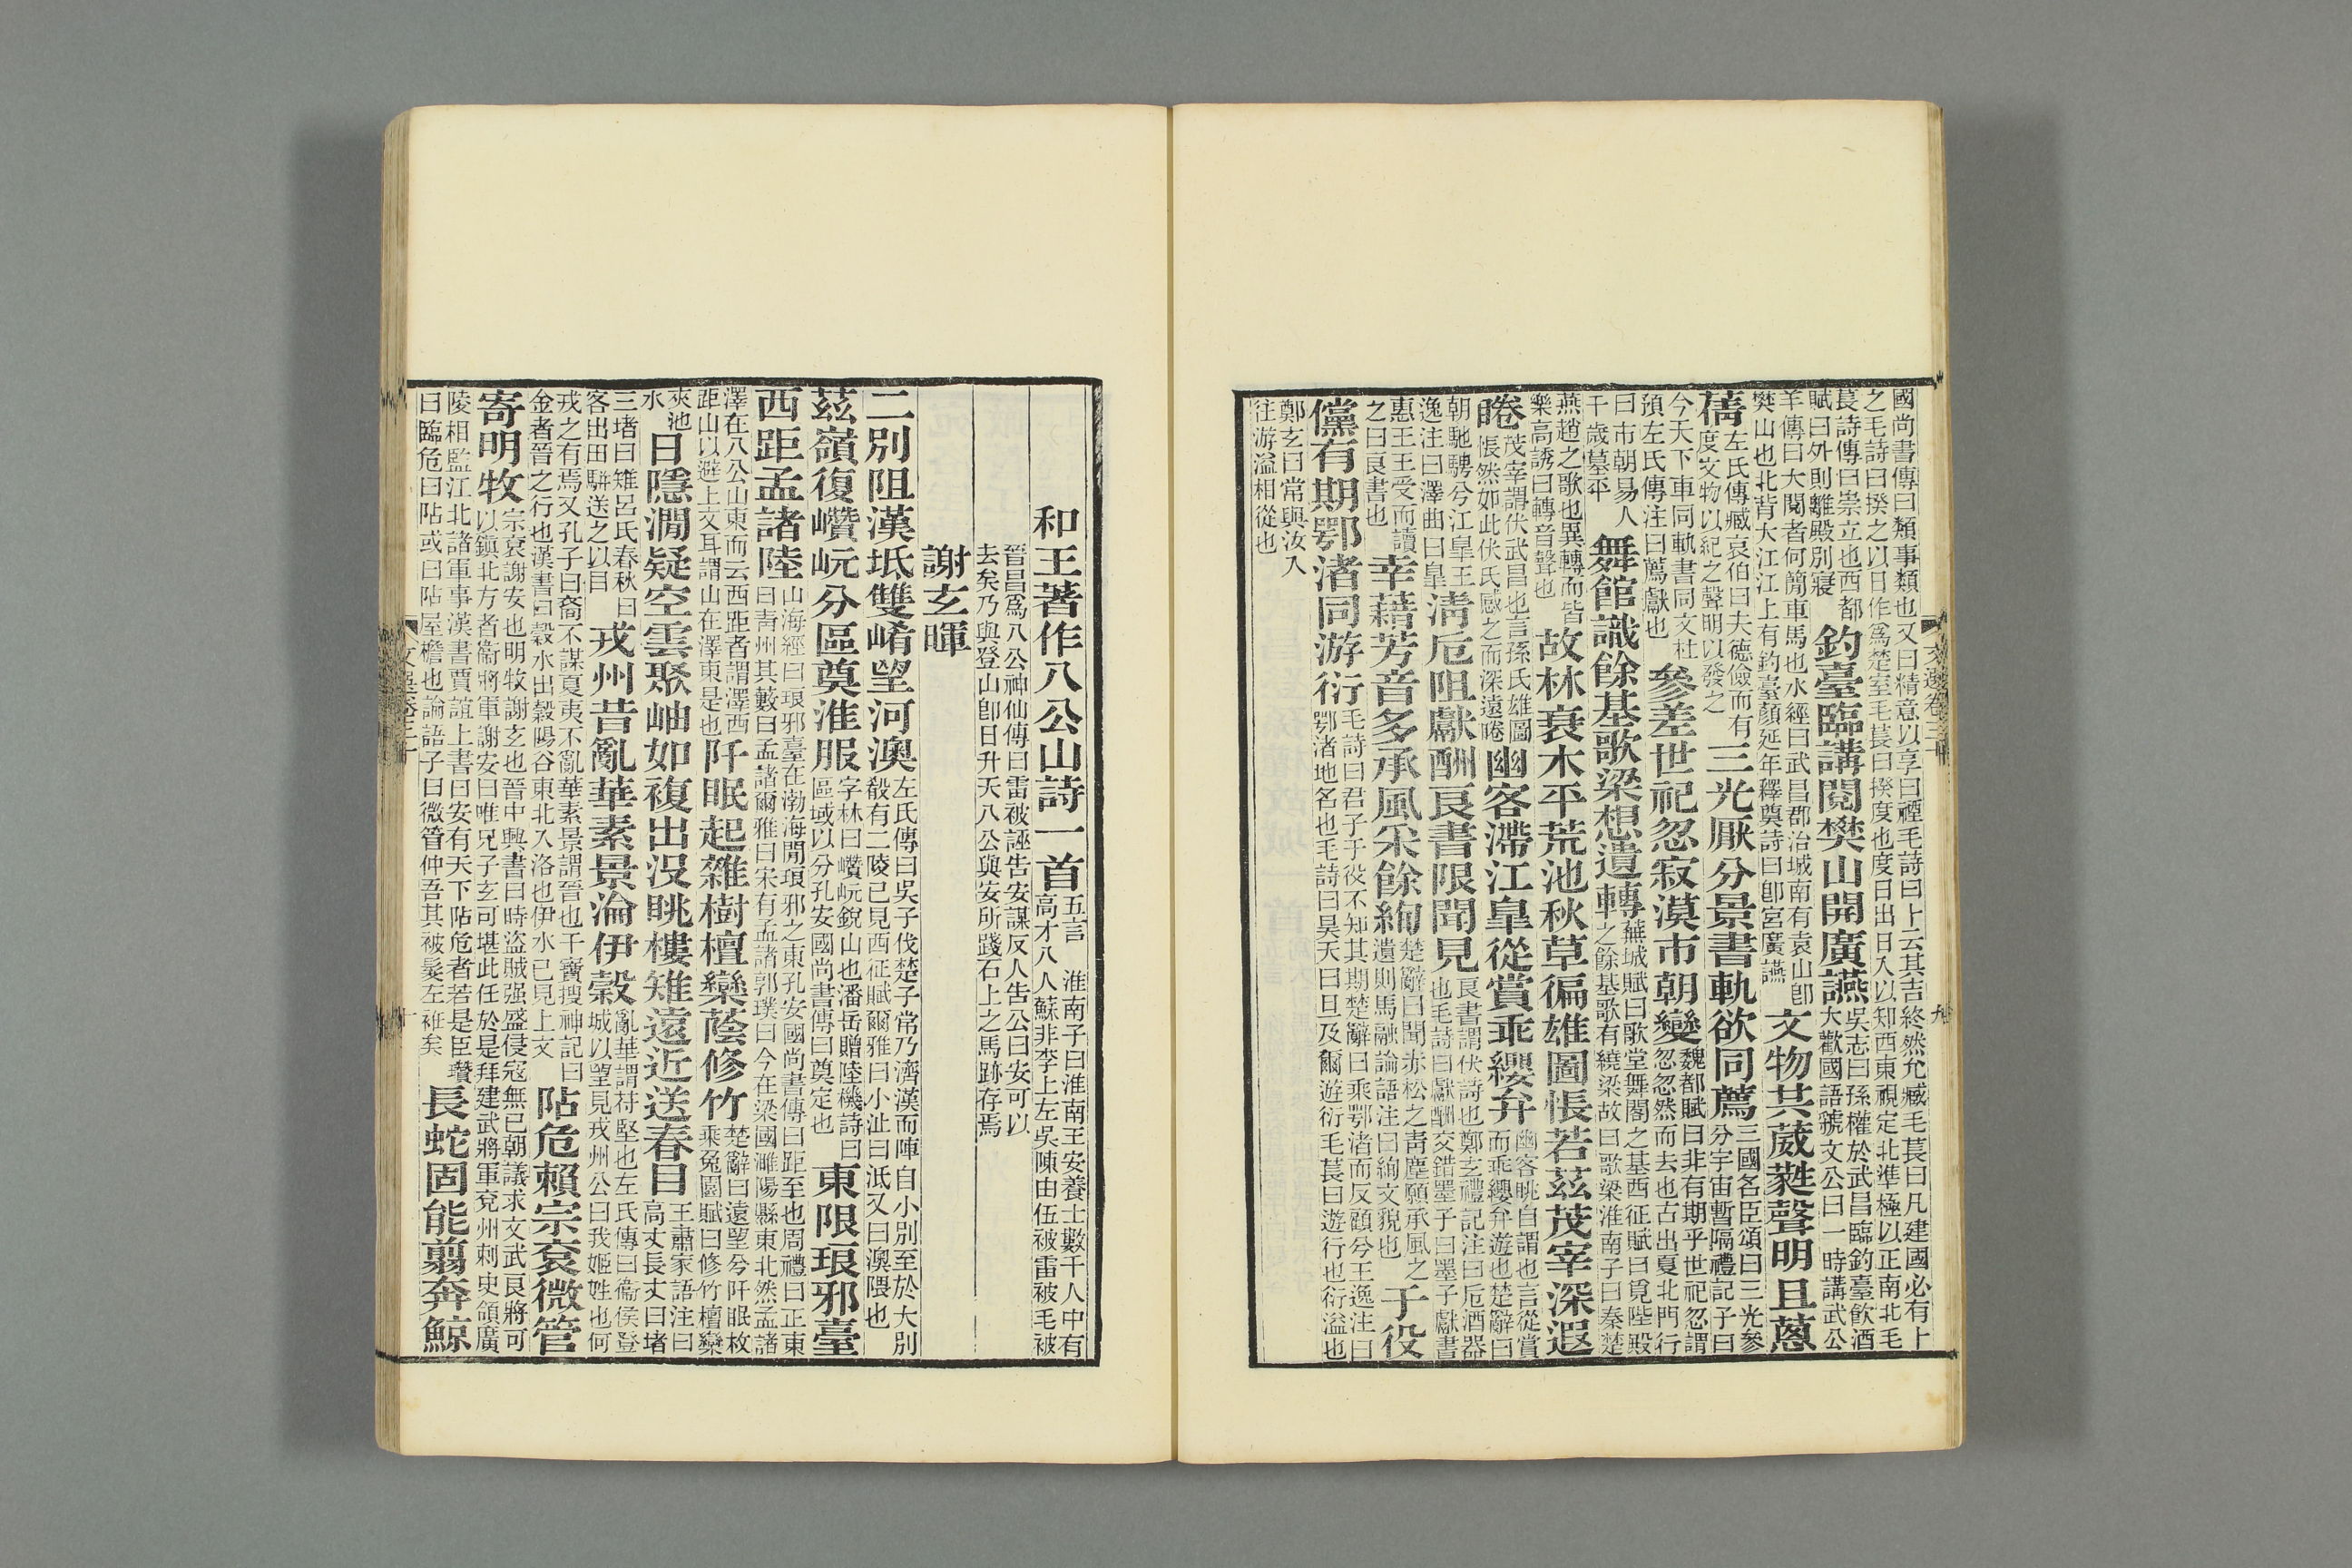 國尚書傳曰類事類也又曰精意以享曰禋毛詩曰卜云其吉終然允臧毛萇曰凡建國必有卜
之毛詩曰揆之以日作爲楚室毛萇曰揆度也度日出日入以知西東視定北準極以正南北毛
萇詩傳曰崇立也西都賦曰外則離殿別寢釣臺臨講閱樊山開廣讌吳志曰孫權於武昌臨釣臺飲酒大歡國語虢文公曰一時講武公
羊傳曰大閱者何簡車馬也水經曰武昌郡治城南有袁山卽樊山也北背大江江上有釣臺顏延年釋奠詩曰卽宮廣讌文物共葳蕤聲明且蔥
蒨左氏傳臧哀伯曰夫德儉而有度文物以紀之聲明以發之三光厭分景書軌欲同薦三國名臣頌曰三光參分宇宙暫隔禮記子曰
今天下車同軌書同文杜預左氏傳注曰薦獻也參差世祀忽寂漠市朝變魏都賦曰非有期乎世祀忽謂忽忽然而去也古出夏北門行
曰市朝易人千歲墓平舞館識餘基歌梁想遺轉蕪城賦曰歌堂舞閣之基西征賦曰覓陛殿之餘基歌有繞梁故曰歌梁淮南子曰秦楚
燕趙之歌也異轉而皆樂高誘曰轉音聲也故林衰木平荒池秋草徧雄圖悵若茲茂宰深遐
睠茂宰謂伏武昌也言孫氏雄圖悵然如此伏氏感之而深遠睠幽客滯江皐從賞乖纓弁幽客眺自謂也言從賞而乖纓弁遊也楚辭曰
朝馳騁兮江皐王逸注曰澤曲曰皐清卮阻獻酬良書限聞見良書謂伏詩也鄭玄禮記注曰卮酒器也毛詩曰獻酬交錯墨子曰墨子獻書
惠王王受而讀之曰良書也幸藉芳音多承風采餘絢楚辭曰聞赤松之清塵願承風之遺則馬融論語注曰絢文貌也于役
儻有期鄂渚同游衍毛詩曰君子于役不知其期楚辭曰乘鄂渚而反顧兮王逸注曰鄂渚地名也毛詩曰昊天曰旦及爾遊衍毛萇曰遊行也衍溢也
鄭玄曰常與汝入往游溢相從也
和王著作八公山詩一首五言 淮南子曰淮南王安養士數千人中有高才八人蘇非李上左吳陳由伍被雷被毛被
晉昌爲八公神仙傳曰雷被誣告安謀反人告公曰安可以去矣乃與登山卽日升天八公與安所踐石上之馬跡存焉
謝玄暉
二別阻漢坻雙崤望河澳左氏傳曰吳子伐楚子常乃濟漢而陣自小別至於大別殽有二陵已見西征賦爾雅曰小沚曰坻又曰澳隈也
茲嶺復巑岏分區奠淮服字林曰巑岏銳山也潘岳贈陸機詩曰區域以分孔安國尚書傳曰奠定也東限琅邪臺
西距孟諸陸山海經曰琅邪臺在渤海閒琅邪之東孔安國尚書傳曰距至也周禮曰正東曰青州其藪曰孟諸爾雅曰宋有孟諸郭璞曰今在梁國濉陽縣東北然孟諸
澤在八公山東而云西距者謂澤西距山以避上文耳謂山在澤東是也阡眠起雜樹檀欒蔭修竹楚辭曰遠望兮阡眠枚乘兔園賦曰修竹檀欒
夾池水日隱澗疑空雲聚岫如複出没眺樓雉遠近送春目王肅家語注曰高丈長丈曰堵
三堵曰雉呂氏春秋曰客出田駢送之以目戎州昔亂華素景淪伊穀亂華謂苻堅也左氏傳曰衞侯登城以望見戎州公曰我姬姓也何
戎之有焉又孔子曰裔不謀夏夷不亂華素景謂晉也干寶搜神記曰金者晉之行也漢書曰穀水出穀陽谷東北入洛也伊水已見上文阽危賴宗袞微管
寄明牧宗袞謝安也明牧謝玄也晉中興書曰時盜賊强盛侵寇無已朝議求文武良將可以鎮北方者衞將軍謝安曰唯兄子玄可堪此任於是拜建武將軍兗州刺史領廣
陵相監江北諸軍事漢書賈誼上書曰安有天下阽危者若是臣瓚曰臨危曰阽或曰阽屋檐也論語子曰微管仲吾其被髮左衽矣長蛇固能翦奔鯨